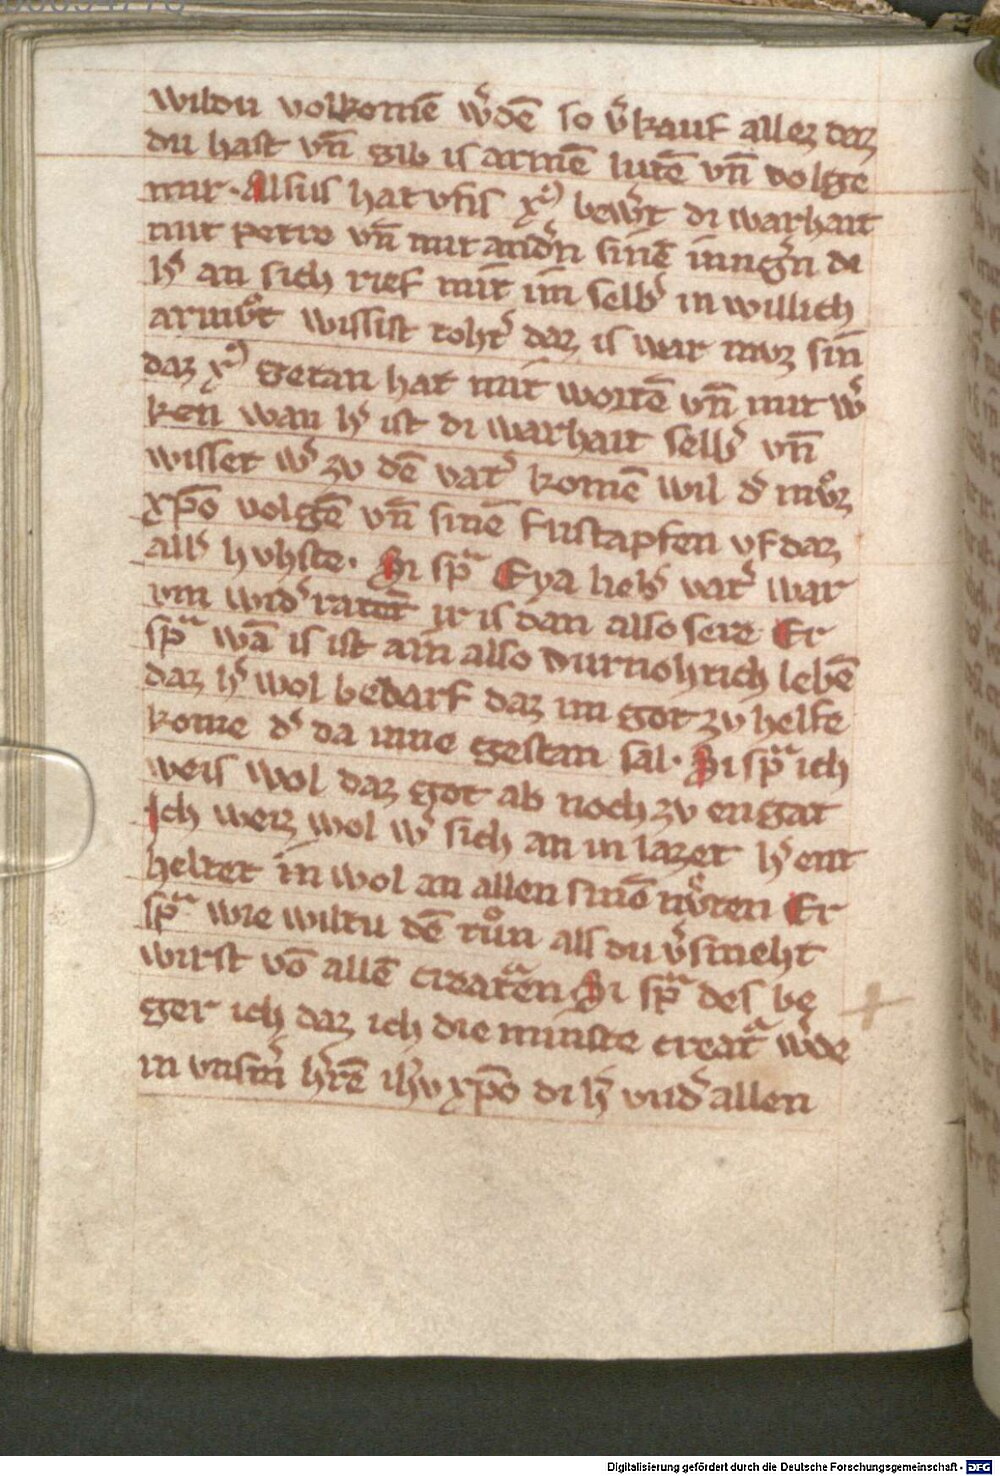 wildu volkomē w᷎dē so v᷎kauf allez daz
du hast vn̄ gib is armē lutē vn̄ volge
mir · Alsus hat vn̄s xꝰ bew᷎t di warhait
mit petro vn̄ mit and᷎n sinē iung᷎n di
h᷎ an sich rief mit im selb᷎ in willich
armvͦt wissist toht᷎ daz is war mvz sin
daz xꝰ getan hat mit wortē vn̄ mit w᷎
ken wan h᷎ ist di warhait selb᷎ vn̄
wisset w᷎ zv dē vat᷎ komē wil d᷎ mvͦz
xp̄o volgē vn̄ sinē fustapfen vf daz
all᷎ hohste · Si spͣ Eya lieb᷎ vat᷎ war
vm wid᷎ratet ir is dan also sere Er
spͣ wā is ist ain also durnohtich lebē
daz h᷎ wol bedarf daz im got zv helfe
kome d᷎ da inne gestan sal · Si spͣ ich
weis wol daz got ab noch zv engat
Ich weiz wol w᷎ sich an in lazet h᷎ ent
heltet in wol an allen sinē nͦvten Er
spͣ wie wiltu dē tuͦn als du v᷎smeht
wirst vō allē creatͣen Si spͣ des be
ger ich daz ich die minste creatͣ w᷎de
in vnsm᷎ h᷎rē ih᷎v xp̄o di h᷎ vnd᷎ allen
Digitalisierung gefördert durch die Deutsche Forschungsgemeinschaft - DFG